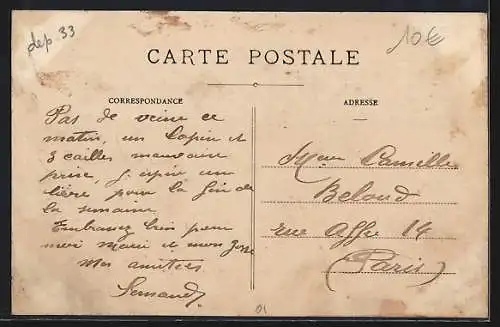 dep. 33
10€
CARTE POSTALE
CORRESPONDANCE
Pas de veine ce
matin, un lapin et
3 cailles mauvaise
prise, j'espère un
lièvre pour la fin de
la semaine
Embrassez bien pour
moi Marie et mon
Mes amitiés
Fernand
ADRESSE
Camille
Beloud
rue Affre 14
(Paris)
01